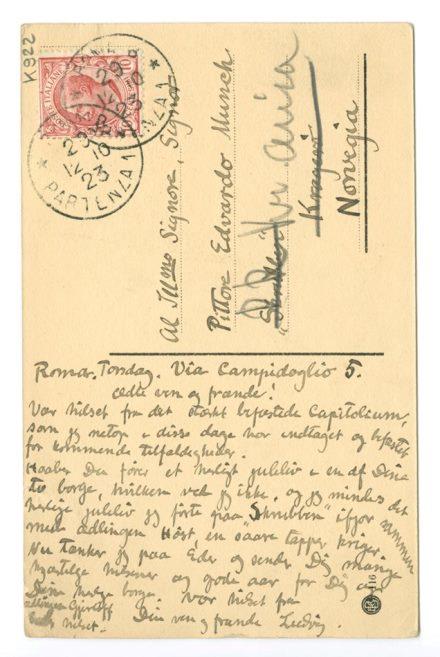 K922
ROMA
29 10
IV 23
PARTENZA
POSTE ITALIANE
Al Illmo Signore, Signor
Pittore Edvardo Munch
"Skrubben"
Kragerö
Norvegia
Roma. Torsdag. Via Campidoglio 5.
ædle ven og frænde!
Vær hilset fra det stærkt befæstede Capitolium,
som jeg netop i disse dage har indtaget og befæstet
for kommende tilfældigheder.
Haaber Du fører et herligt juleliv i en af Dine
to borge, hvilken ved jeg ikke, og jeg mindes det
herlige juleliv jeg førte paa "Skrubben" ifjor sammen
med adlingen Høst, en saare tapper kriger
Nu tænker jeg paa Eder og sender Dig mange
hjærtelige hilsener og gode aar for Dig og
Dine borge. Vær hilset fra
Din ven og frænde Ludvig.
adlingen Gjerløff
hilset.
116